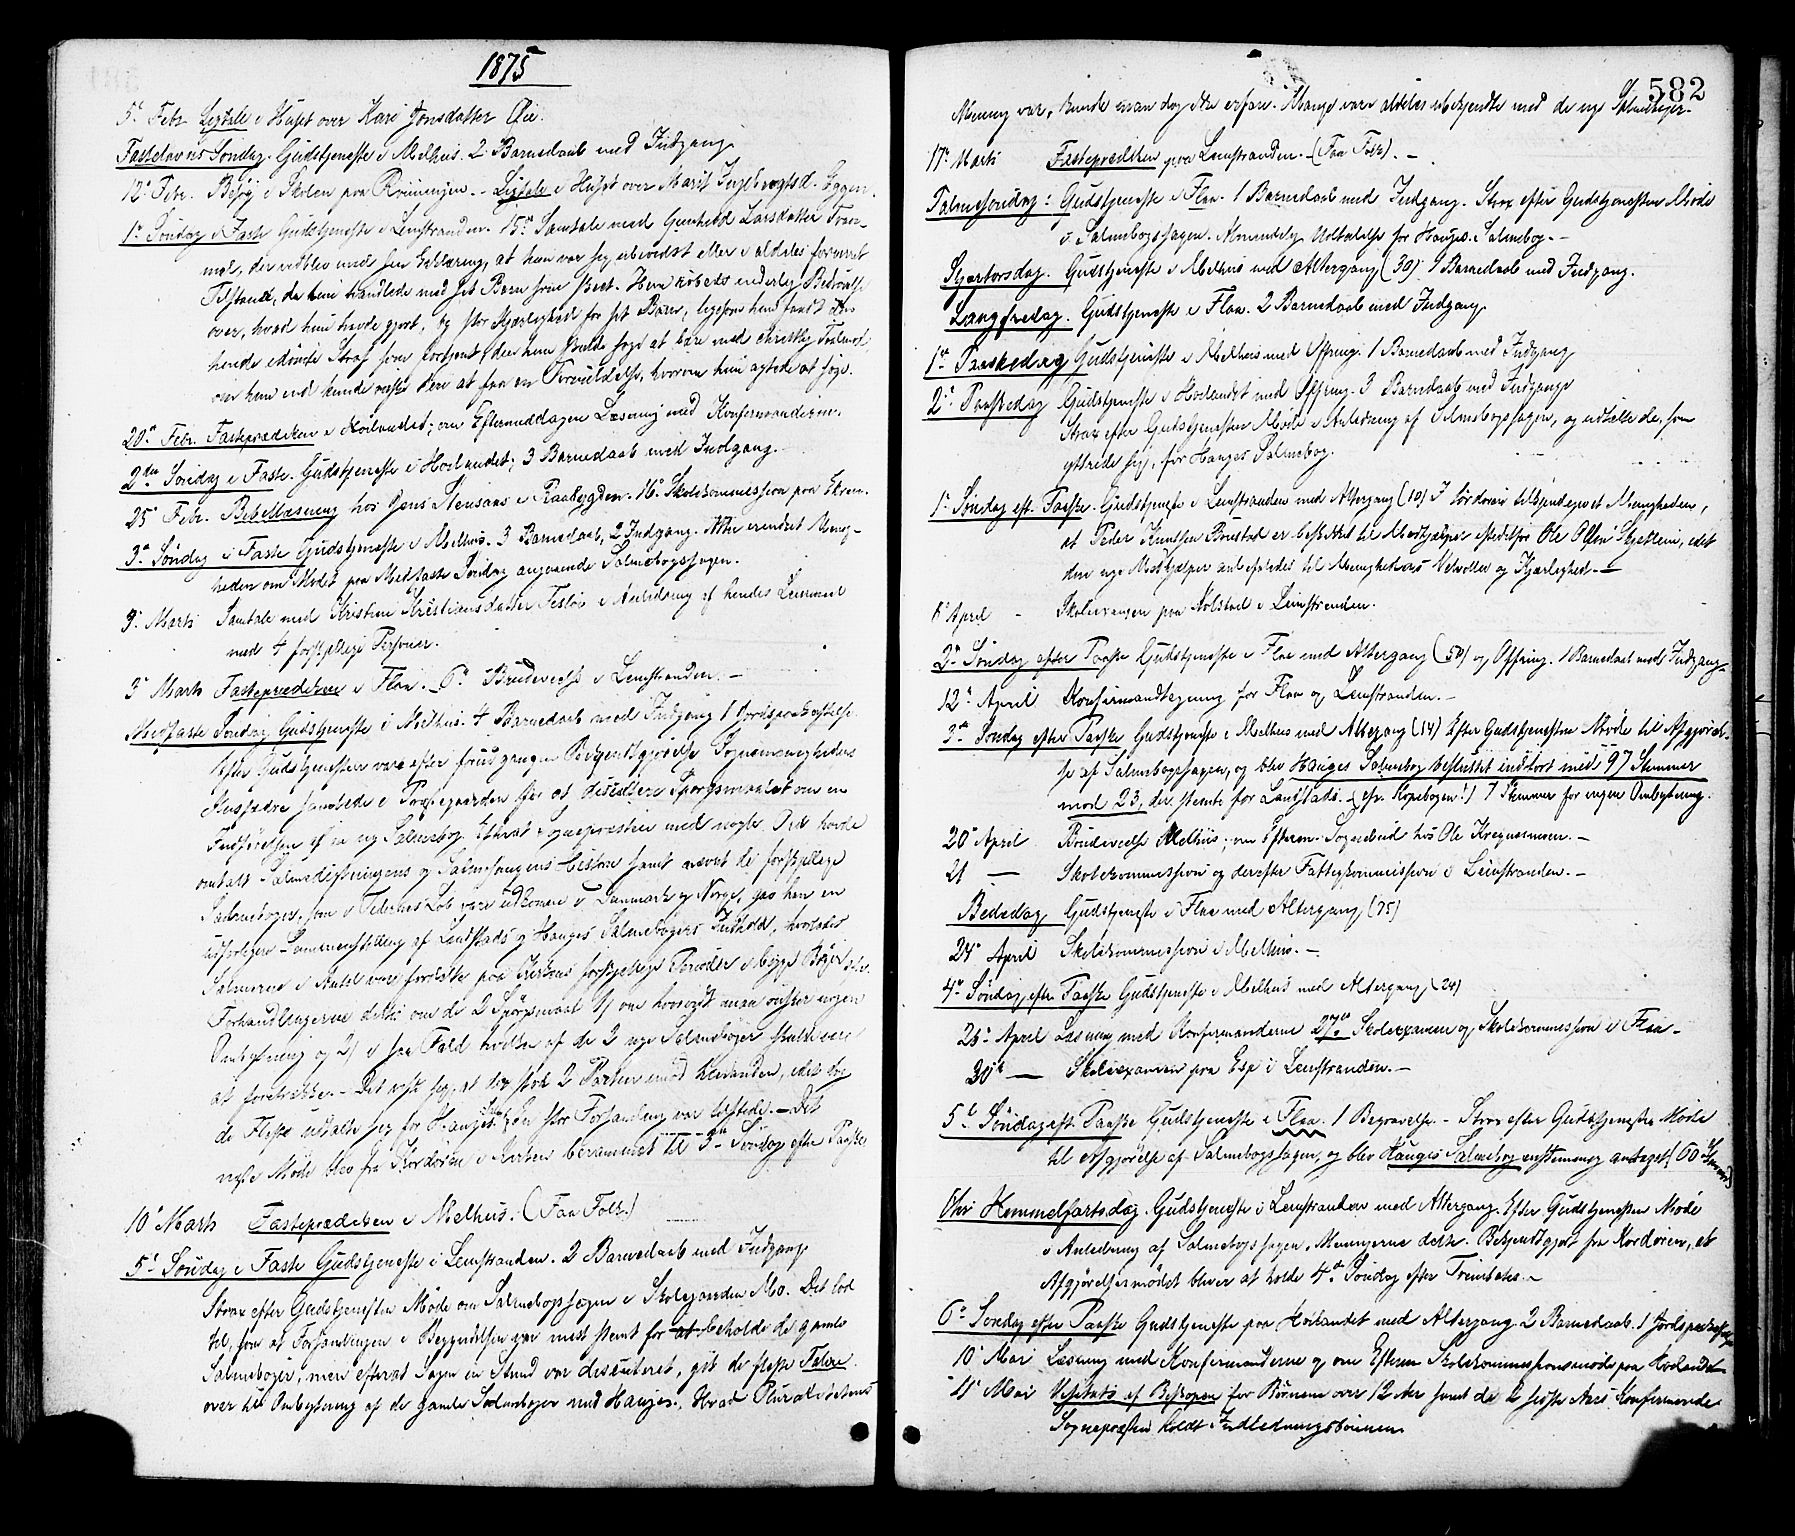 1875
5. Febr. Ligtale i Huset over Kari Jonsdatter Øie.
Fastelavns Søndag. Gudstjeneste i Melhus. 2 Barnedaab med Indgang
12. Febr. Besøg i Skolen paa Rønningen. - Ligtale i Huset over Marit Ingebrigtsd. Eggen.
1ste Søndag i Faste Gudstjeneste i Leinstranden. 15de Samtale med Gunhild Larsdatter
der vedblev med sin Erklæring, at hun var sig ubevidst eller i aldeles forvirret
Tilstand, da hun handlede med sit Barn som skeet. Hun inderlig Bedrøvelse
over, hvad hun havde gjort, og stor Kjærlighed for sit Barn, ligesom hun fandt den
hende idømte Straf som fortjent, den hun skulde søge at bære med christelig Taalmod
om hun end kunde at faa en Formildelse, hvorom hun agtede at søge.
20de Febr. Fasteprædiken i Høilandet; om Eftermiddagen Læsning med Konfirmanderne.
2den Søndag i Faste. Gudstjeneste i Høilandet; 3 Barnedaab med Indgang.
25 Febr. Bibellæsning hos Jens Stensaas i Raabygden. Skolekommission paa
3de Søndag i Faste Gudstjeneste i Melhus. 3 Barnedaab, 2 Indgang. Atter erindret Menig-
heden om Mødet paa Midfaste Søndag angaaende Salmebogssagen.
Marts Samtale med Kristine Kristiansdatter i Anledning af hendes Leiermaal
med 4 forskjellige Personer.
3 Marts Fasteprædiken i Flaa. 6te Brudevielse i Leinstranden. -
Midfaste Søndag Gudstjeneste i Melhus. 4 Barnedaab med Indgang 1 Jordspaakastelse.
Efter Gudstjenesten vare efter forudgangen Bekjendtgjørelse Sognemenighedens
Husfædre samlede i Præstegaarden for at diskutere Spørgsmaalet om en
Indførelse af en ny Salmebog. Efterat Sognepræsten med nogle Ord havde
omtalt Salmedigtningens og Salmesangens Historie samt nævnt de forskjellige
Salmebøger, som i Tidernes Løb vare udkomne i Danmark og Norge, gav han en
udførligere Sammenstilling af Landstads og Hauges Salmebøgers Indhold, hvorledes
Salmerne i Antal vare fordelte paa Kirkens forskjellige Perioder i begge Bøger
Forhandlingerne dreiede om de 2 Spørgsmaal 1) om hvorvidt man ønsker nogen
Ombytning og 2) i saa Fald hvilken af de 2 nye Salmebøger skulde være
at foretrække. - Det viste sig, at der stod 2 Partier imod hinanden, idet dog
de Fleste udtalte sig for Hauges. En stor Forsamling var tilstede. - Det
nye Møde blev fra Kordøren i Kirken berammet til 3die Søndag efter Paaske
10 Marts Fasteprædiken i Melhus. (Faa Folk.)
5te Søndag i Faste Gudstjeneste i Leinstranden. 2 Barnedaab med Indgang
Strax efter Gudstjenesten Møde om Salmebogssagen i Skolegaarden Mo. Det lod
til, som at Forsamlingen i Begyndelsen var mest stemt for at beholde de gamle
Salmebøger, men efterat Sagen en Stund var discuteret, gik de fleste Talere
over til Ombytning af de gamle Salmebøger med Hauges. Hvad Pluralitetens
582
Mening var, kunde man dog ikke erfare. Mange vare aldeles ubekjendte med de nye Salmebøger.
17de Marts Fasteprædiken paa Leinstranden. - (Faa Folk). -
Palmesøndag: Gudstjeneste i Flaa. 1 Barnedaab med Indgang. Strax efter Gudstjenesten Møde
i Salmebogssagen. Almindelig Udtalelse for Hauges Salmebog. -
Skjærtorsdag. Gudstjeneste i Melhus med Altergang (30) 1 Barnedaab med Indgang.
Langfredag. Gudstjeneste i Flaa. 2 Barnedaab med Indgang
1ste Paaskedag Gudstjeneste i Melhus med Offring. 1 Barnedaab med Indgang
2. Paaskedag Gudstjeneste i Høilandet med Offring. 3 Barnedaab med Indgang
Strax efter Gudstjenesten Møde i Anledning af Salmebogssagen, og udtalte de, som
yttrede sig, for Hauges Salmebog.
1. Søndag eft. Paaske. Gudstjeneste i Leinstranden med Altergang (10) I Kordøren tilkjendegivet Menigheden,
at Peder Knudsen Brustad er beskikket til Medhjælper istedetfor Ole Olsen Skjetlein, idet
den nye Medhjælper anbefaledes til Menighedens Velvillie og Kjærlighed. -
8. April - Skoleexamen paa Nolstad i Leinstranden.
2. Søndag efter Paaske Gudstjeneste i Flaa med Altergang (50) og Offring. 1 Barnedaab med Indgang
12te April Konfirmandtegning for Flaa og Leinstranden. -
3die Søndag efter Paaske Gudstjeneste i Melhus med Altergang (14) Efter Gudstjenesten Møde til Afgjørel-
se af Salmebogssagen, og blev Hauges Salmebog besluttet indført med 97 Stemmer
mod 23, der stemte for Landstads. - (cfr. Kopibogen!) 7 Stemmer for ingen Ombytning.
20. April Brudevielse Melhus; om Efterm. Sognebud hos Ole -
21 — Skolekommission og derefter Fattigkommission i Leinstranden. -
Bededag Gudstjeneste i Flaa med Altergang (75)
24. April Skolekommission i Melhus. -
4de Søndag efter Paaske Gudstjeneste i Melhus med Altergang (24)
26. April Læsning med Konfirmanderne 27de Skoleexamen og Skolekommission i Flaa -
30te — Skoleexamen paa Esp i Leinstranden. -
5te Søndag eft. Paaske Gudstjeneste i Flaa. 1 Begravelse. - Strax efter Gudstjenesten Møde
til Afgjørelse af Salmebogssagen, og blev Hauges Salmebog enstemmig antaget (60 Stemmer)
Chr. Himmelfartsdag. Gudstjeneste i Leinstranden med Altergang. Efter Gudstjenesten Møde
i Anledning af Salmebogssagen. Meningerne delte. Bekjendtgjort fra Kordøren, at
Afgjørelsesmødet bliver at holde 4de Søndag efter Trinitatis. -
6te Søndag efter Paaske Gudstjeneste paa Høilandet med Altergang 2 Barnedaab. 1 Jordspaakastelse
10. Mai Læsning med Konfirmanderne og om Efterm Skolekommissionsmøde paa Høilandet
11. Mai Visitats af Biskopen for Børnene over 12 Aar samt de 2 sidste Aars Konfirmerede
Sognepræsten holdt Indledningsbønnen